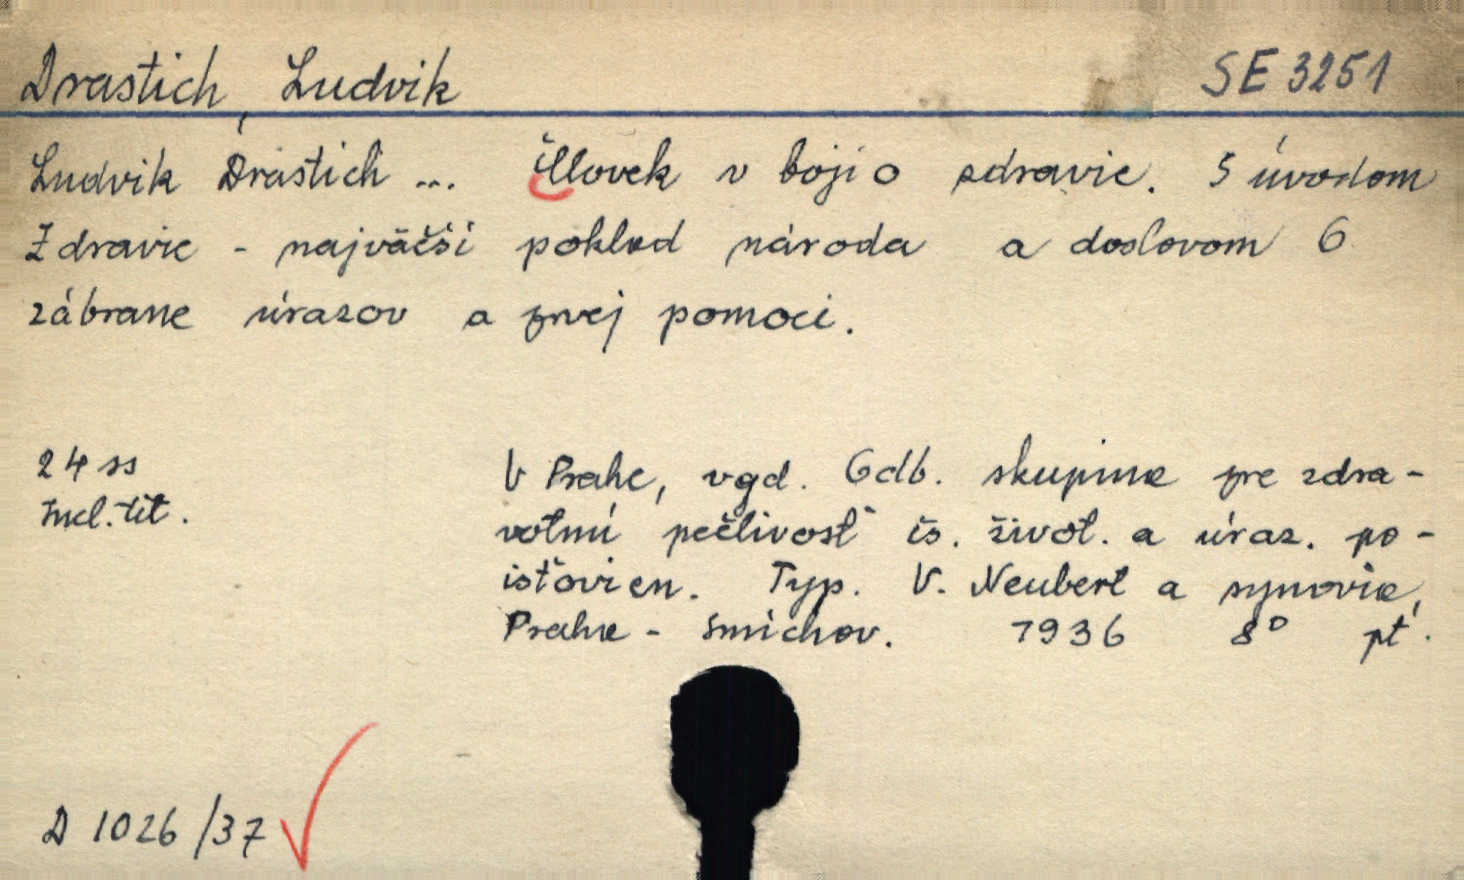 Drastich, Ludvik SE 3251
Ludvik Drastich ... Človek v boji o zdravie. S úvodom
Zdravie - najväčší poklad národa a doslovom O
zábrane úrazov a prvej pomoci.
24 ss V Prahe, vyd. Odb. skupina pre zdra-
incl. tit. votnú pečlivosť čs. život. a úraz. po-
isťovien. Typ. V. Neubert a synovia,
Praha - Smíchov. 1936 8° pt.
D 1026/37